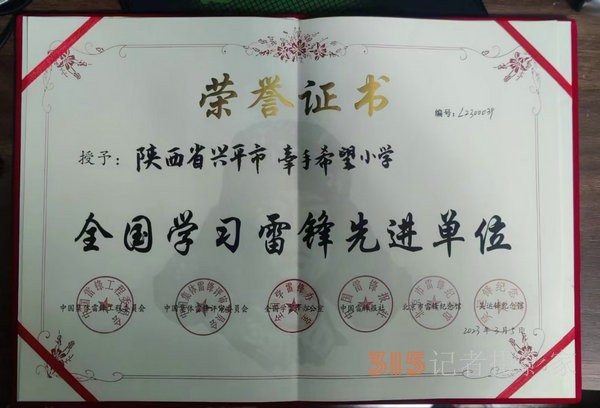 荣誉证书
编号:L2300039
授予:陕西省兴平市 牵手希望小学
全国学习雷锋先进单位
中国集体雷锋工程委员会 中国集体雷锋评审委员会 全国学雷锋办公室 中国雷锋报社 北京市雷锋纪念馆
2023年3月5日
315记者